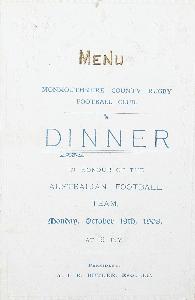 MENU
MONMOUTHSHIRE COUNTY RUGBY
FOOTBALL CLUB.
DINNER
IN HONOUR OF THE
AUSTRALIAN FOOTBALL
TEAM,
Monday, October 19th, 1908,
AT
PRESIDENT:
BUTLER, ESQ.,